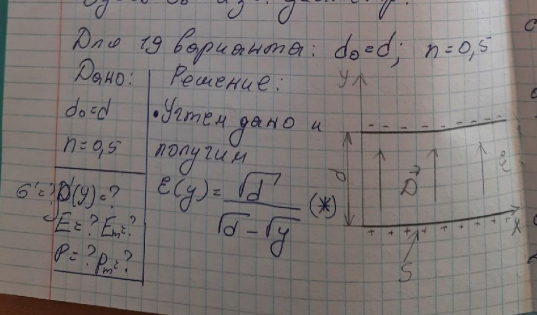 Для 19 варианта: d₀=d; n=0,5
Дано:
d₀=d
n=0,5
σ'=? D(y)=?
E=? Eₘ=?
P=? Pₘ=?
Решение:
• Учтем дано и
получим
ε(y) = √d / (√d - √y) (*)
y
- - - - - - - -
d
D⃗
ε
+ + + + + + + + + +
x
S